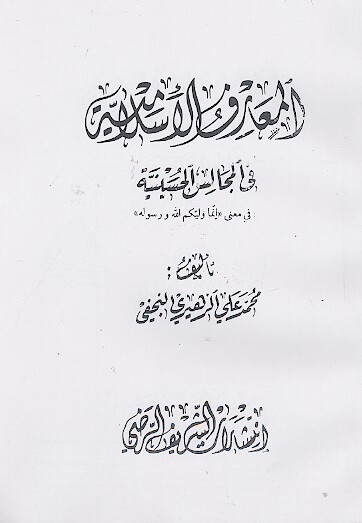 المعارف الإسلامية
في المجالس الحسينية
في معنى «إنما وليكم الله ورسوله»
تأليف :
محمد علي الزهيري النجفي
انتشارات الشريف الرضي